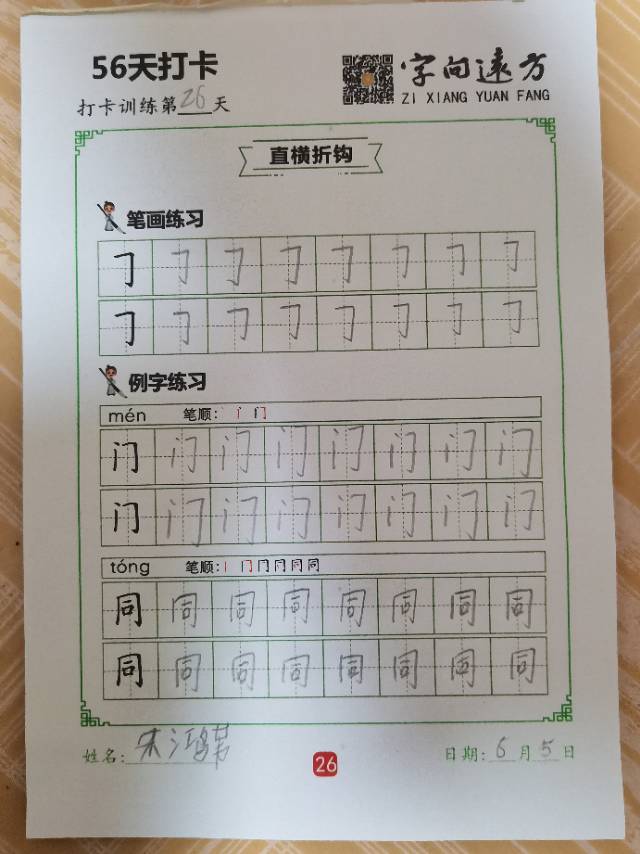 56天打卡
字向远方
打卡训练第26天
ZI XIANG YUAN FANG
直横折钩
笔画练习
𠃌 𠃌 𠃌 𠃌 𠃌 𠃌 𠃌 𠃌
𠃌 𠃌 𠃌 𠃌 𠃌 𠃌 𠃌 𠃌
例字练习
mén 笔顺:
门 门 门 门 门 门 门 门
门 门 门 门 门 门 门 门
tóng 笔顺:
同 同 同 同 同 同 同 同
同 同 同 同 同 同 同 同
姓名: 朱鸿 26 日期: 6月5日